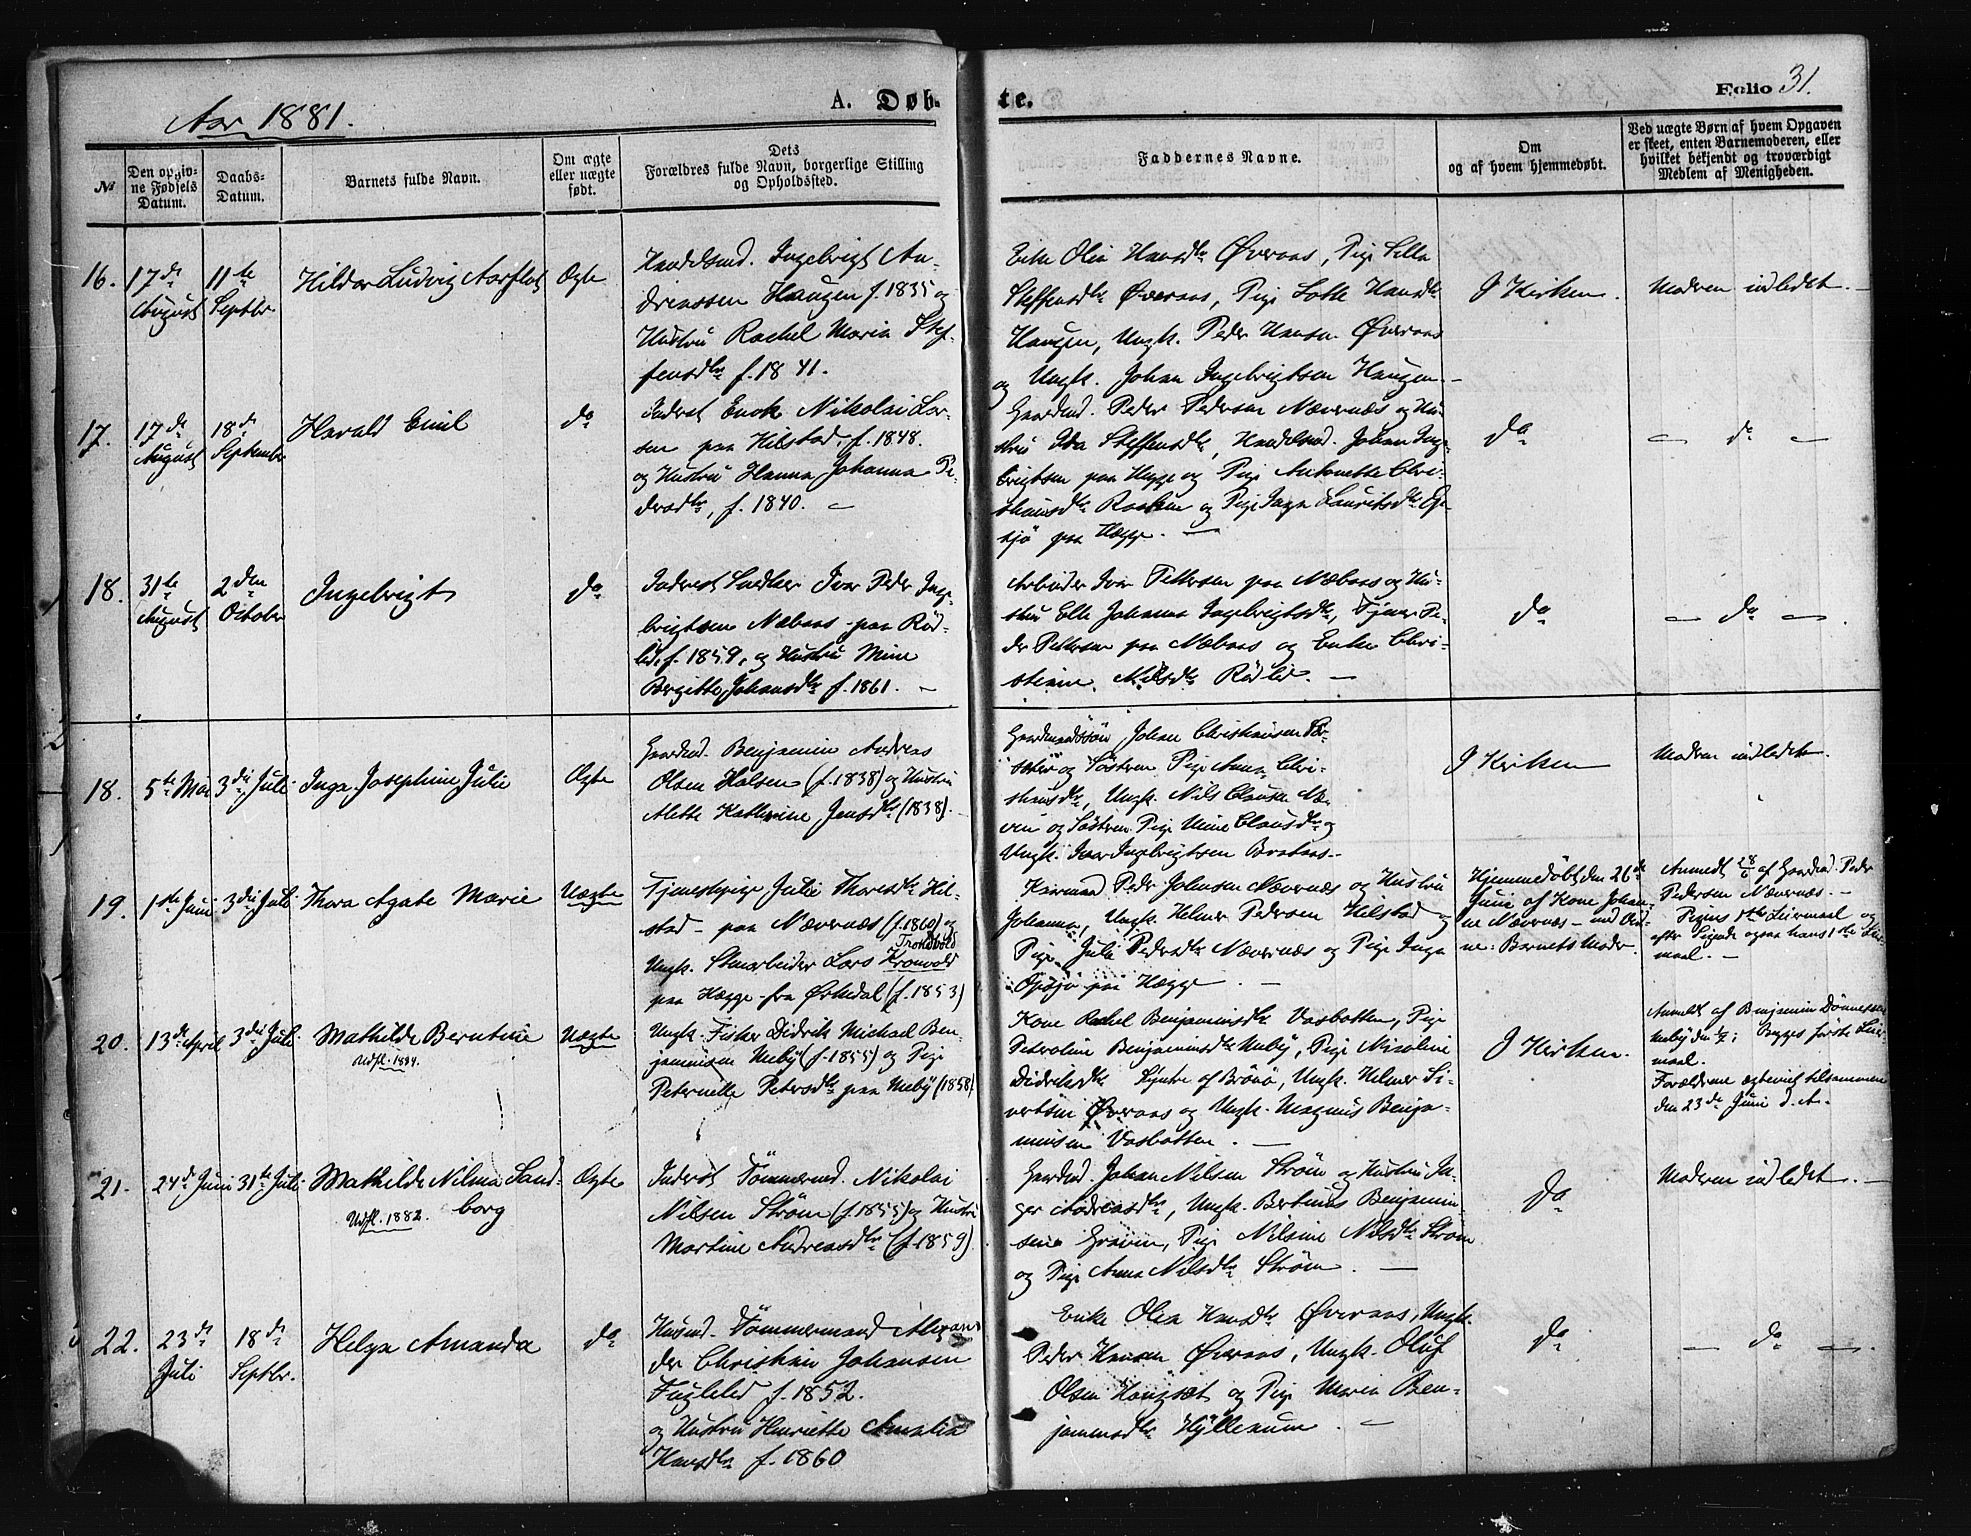 Aar 1881.
A. Døb-
te.
Folio 31.
№
Den opgiv-
ne Fødsels
Datum.
Daabs-
Datum.
Barnets fulde Navn.
Om ægte
eller uægte
født.
Dets
Forældres fulde Navn, borgerlige Stilling
og Opholdssted.
Faddernes Navne.
Om
og af hvem hjemmedøbt.
Ved uægte Børn af hvem Opgaven
er skeet, enten Barnemoderen, eller
hvilket bekjendt og troværdigt
Medlem af Menigheden.
16.
17de
August
11te
Septbr.
Hildor Ludvig Aarflot
Ægte
Huusmd. Ingebrigt An-
driassen Haugen f. 1835 og
Hustru Rachel Maria Stef-
fensdtr f. 1841.
Enke Olia Hansdtr Øveraas, Pige
Steffensdtr Øveraas, Pige Lotte Hansdtr
Haugen, Ungk. Peder Hansn. Øveraas
og Ungk. Johan Ingebrigtsen Haugen.
I Kirken.
Modren indledet.
17.
17de
August
18de
September
Harald Emil
do
Inderst Enok Nikolai Lar-
sen paa Hilstad, f. 1848.
og Hustru Hanna Johanna Pe-
dersdtr, f. 1840.
Gaardmd. Peder Pedersen Nævernæs og Hu-
stru Ida Steffensdtr, Johan Inge-
brigtsen paa Hegge og Pige Antonette Chri-
stiansdtr og Pige Inga Lauritsdtr
paa Hegge.
do
do
18.
31te
August
2den
October
Ingebrigt
do
Inderst Snedker Ivar Peder Inge-
brigtsen Næbaas paa Rød-
lid, f. 1859, og Hustru Mine
Bergitte Johansdtr f. 1861.
Arbeider Ivar Pettersen paa Næbaas og Hu-
stru Elle Johanna Ingebrigtsdtr, Tjener Pe-
der Pettersen paa Næbaas og Enke Chri-
stianne Nilsdtr Rødlid.
do
do
18.
5te Mai
3die Juli
Inga Josephine Julie
Ægte
Gaardmd. Benjamin Andreas
Olsen Holsen (f. 1838) og Hustru
Alette Kathrine Jensdtr (1838).
Gaardmandssøn Johan Christiansen
og Søstren Pige Anna Chri-
stiansdtr, Ungk. Nils Clausen Næ-
og Søstren Pige Mine Clausdtr og
Ungk. Ivar Ingebrigtsen
I Kirken
Modren indledet.
19.
1ste Juni
3die Juli
Thora Agate Marie
Uægte
Tjenestepige Julie Thoresdtr Hil-
stad paa Nævernæs (f. 1860) og
Trondvold
Ungk. Stenarbeider Lars Kronvold
paa Hegge fra Ørkedal (f. 1853)
Kaarmand Peder Johnsen Nævernæs og Hustru
Johanna, Ungk. Helmer Pedersen Hilstad og
Pige Julie Pedersdtr Nævernæs og Pige Inga
paa Hegge.
Hjemmedøbt den 26de
Juni af Kone Johan-
ne Nævernæs
Barnets Moder
Anmeldt 28/6 af Gaardmd. Peder
Pedersen Nævernæs.
Pigens 1ste Leiermaal og
efter Sigende ogsaa hans 1ste Leier-
maal.
20.
13de April
3die Juli
Mathilde Berntine
Udfl. 1884.
Uægte
Ungk. Fisker Didrik Michael Ben-
jaminsen Meby (f. 1855) og Pige
Peternelle Petersdtr paa Meby (1858)
Kone Rachel Benjaminsdtr Vasbotten, Pige
Peteroline Benjaminsdtr Meby, Pige Nicoline
Didriksdtr af Brønø, Ungk. Helmer Si-
vertsen Øveraas og Ungk. Magnus Benja-
minsen Vasbotten.
I Kirken.
Anmeldt af Benjamin Dønnessen
Meby den 3/7; Begges første Leier-
maal.
Forældrene ægteviet tilsammen
den 23de Juni d. A.
21.
24de Juni
31te Juli
Mathilde Nilma Sand-
borg
Udfl. 1882.
Ægte
Inderst Tømmermd. Nikolai
Nilsen Strøm (f. 1855) og Hustru
Martine Andreasdtr (f. 1859).
Gaardmd. Johan Nilsen Strøm og Hustru In-
ger Andreasdtr, Ungk. Bertinus Benjamin-
sen Graven, Pige Nilsine Nilsdtr Strøm
og Pige Anna Nilsdtr Strøm.
do
Modren indledet.
22.
23de
Juli
18de
Septbr.
Helga Amanda
do
Husmd. Tømmermand Alexan-
der Christian Johansen
Fuglelid f. 1852.
og Hustru Henriette Amalia
Hansdtr f. 1860
Enke Olia Hansdtr Øveraas, Ungk.
Peder Hansen Øveraas, Ungk. Oluf
Olsen Hongset og Pige Maria Ben-
jaminsdtr Hyllerum.
do
do